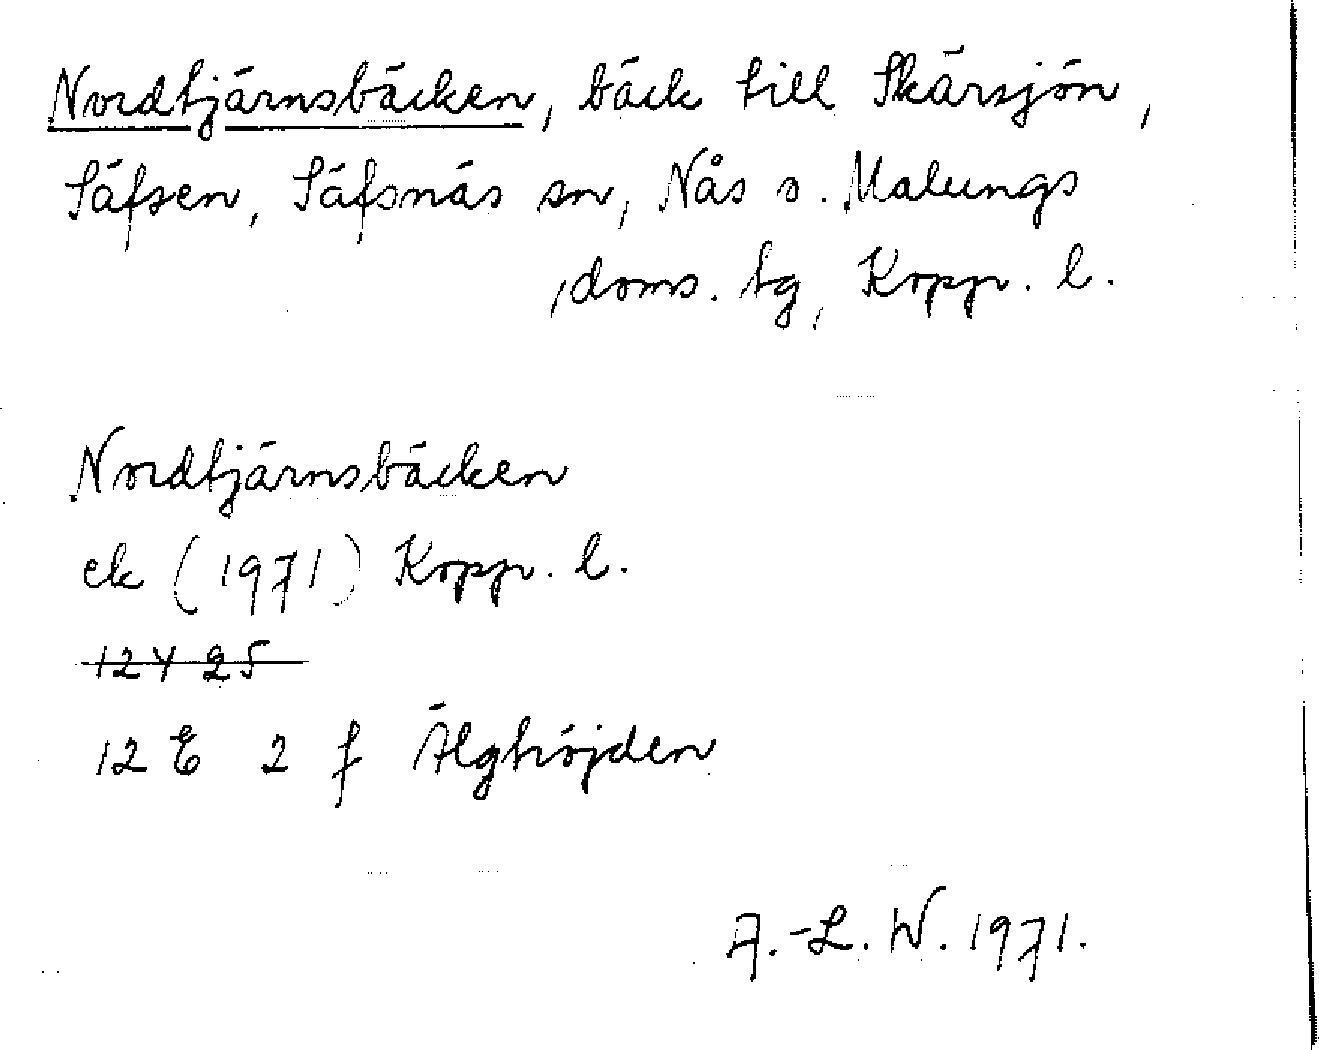 Nordtjärnsbäcken, bäck till Skärsjön,
Säfsen, Säfsnäs sn, Nås o. Malungs
doms. tg, Kopp. l.
Nordtjärnsbäcken
ek (1971) Kopp. l.
12 E 2 f Älghöjden
A.-L. W. 1971.